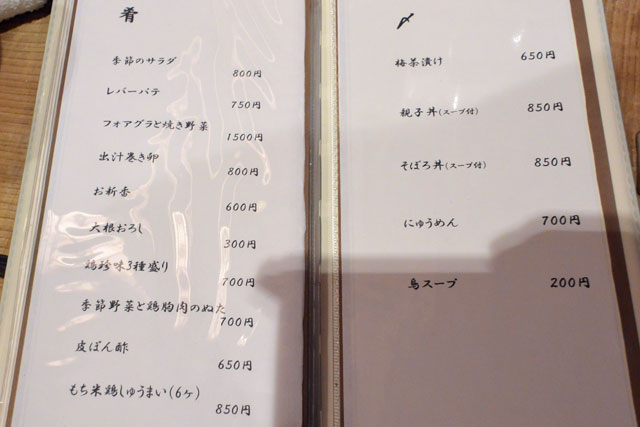 肴
季節のサラダ 800円
レバーパテ 750円
フォアグラと焼き野菜 1500円
出汁巻き卵 800円
お新香 600円
大根おろし 300円
鶏珍味3種盛り 700円
季節野菜と鶏胸肉のぬた 700円
皮ぽん酢 650円
もち米鶏しゅうまい(6ヶ) 850円
〆
梅茶漬け 650円
親子丼(スープ付) 850円
そぼろ丼(スープ付) 850円
にゅうめん 700円
鳥スープ 200円